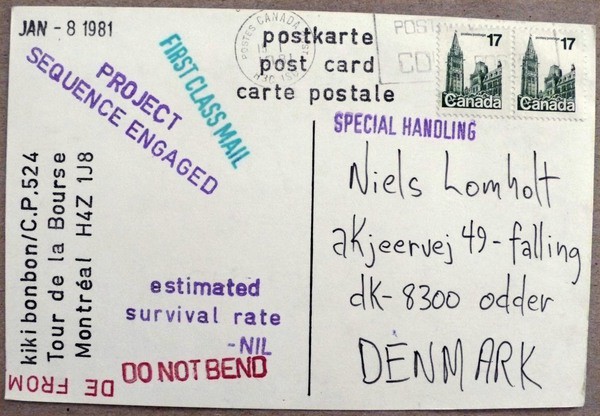 JAN - 8 1981
POSTES CANADA POST
postkarte
post card
carte postale
17
Canada
17
Canada
FIRST CLASS MAIL
PROJECT
SEQUENCE ENGAGED
SPECIAL HANDLING
Niels Lomholt
akjeervej 49 - falling
dk- 8300 odder
DENMARK
kiki bonbon/C.P.524
Tour de la Bourse
Montréal H4Z 1J8
estimated
survival rate
-NIL
DO NOT BEND
DE FROM